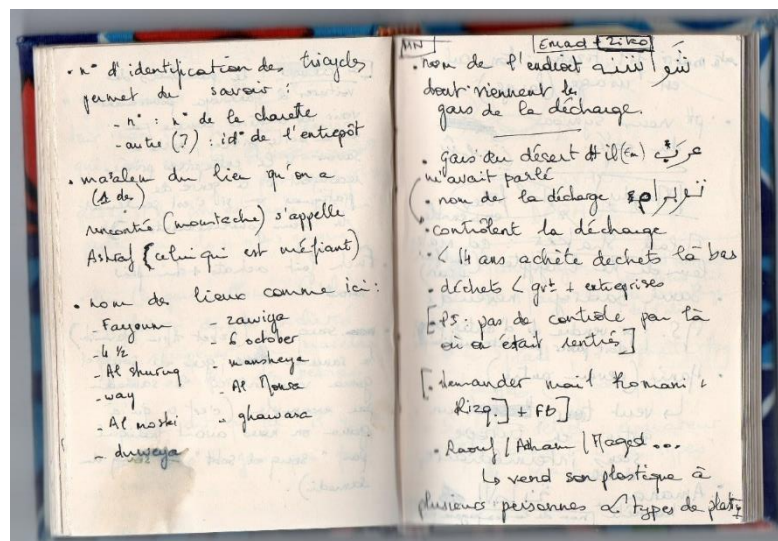 • n° d'identification des tricycles
permet de savoir :
- n° : n° de la charette
- autre (?) : id° de l'entrepôt
• maalem du lieu qu'on a
(1 des)
rencontré (moustache) s'appelle
Ashraf (celui qui est méfiant)
• nom de lieux comme ici :
- Fayoum
- 4 ½
- Al shuruq
- way
- Al moski
- duweya
- zawiya
- 6 october
- mansheya
- Al
- ghawara
MN
Emad + Ziko
• nom de l'endroit
dont viennent les
gars de la décharge.
• gars du désert # il (Em) عرب
m'avait parlé
• nom de la décharge
• contrôlent la décharge
• < 14 ans achète dechets là bas
• déchets < gvt + entreprises
[PS : pas de contrôle par là
où on était rentrés]
[• demander mail Romani,
Rizq] + FB]
• Raouf / Adham / Maged ...
↳ vend son plastique à
plusieurs personnes ≠ types de plast